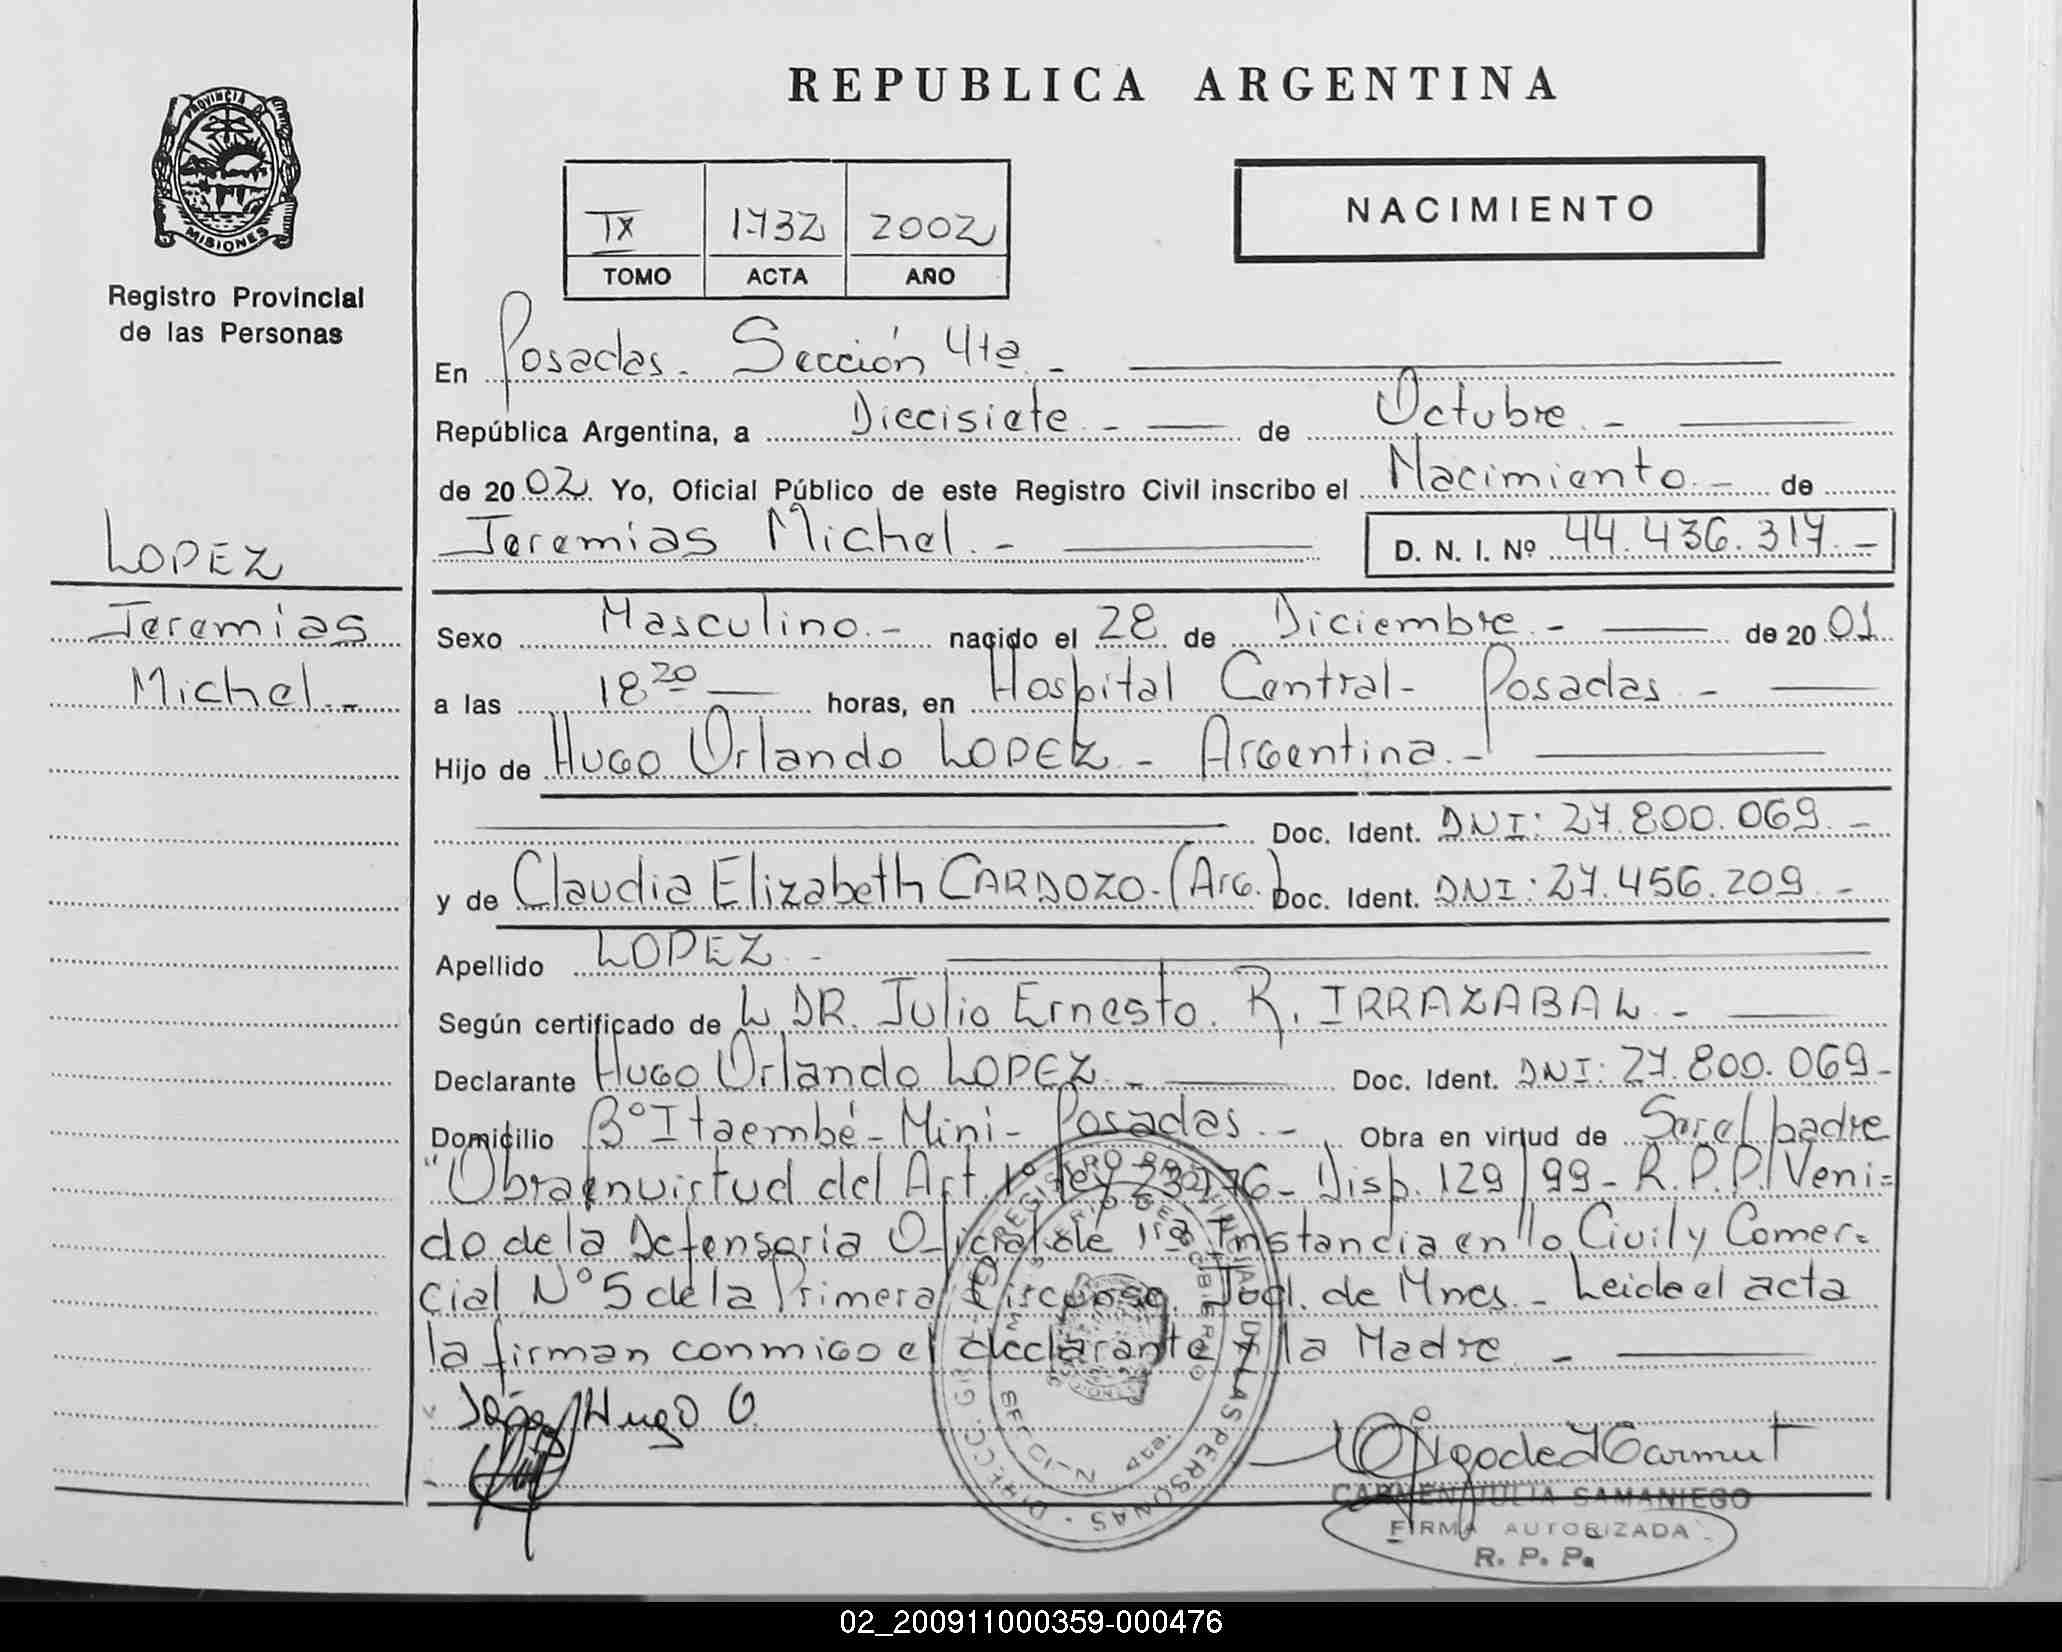 PROVINCIA DE
MISIONES
Registro Provincial
de las Personas
LOPEZ
Jeremias
Michel.-
REPUBLICA ARGENTINA
IX 1732 2002
TOMO ACTA AÑO
NACIMIENTO
En Posadas. Sección 4ta. -
República Argentina, a Diecisiete. - de Octubre. -
de 2002. Yo, Oficial Público de este Registro Civil inscribo el Nacimiento. - de
Jeremías Michel. - D. N. I. Nº 44.436.317. -
Sexo Masculino. - nacido el 28 de Diciembre. - de 2001
a las 18 20 horas, en Hospital Central - Posadas. -
Hijo de Hugo Orlando LOPEZ. - Argentina. -
Doc. Ident. DNI: 27.800.069. -
y de Claudia Elizabeth CARDOZO. (Arg.) Doc. Ident. DNI: 27.456.209. -
Apellido LOPEZ. -
Según certificado de L DR. Julio Ernesto. R. IRRAZABAL. -
Declarante Hugo Orlando LOPEZ. - Doc. Ident. DNI: 27.800.069-
Domicilio Bº Itaembé - Mini - Posadas. - Obra en virtud de Ser el padre
"Obra en virtud del Art. 1º ley - Disp. 129/99 - R.P.P./Veni=
do de la Defensoria Oficial de 1ra Instancia en lo Civil y Comer=
cial Nº 5 de la Primera Jdal. de Mnes. - Leida el acta
la firman conmigo el declarante y la Madre. -
Hugo O.
DIRECC. GRAL. REGISTRO PROVINCIAL DE LAS PERSONAS
MINISTERIO DE GOBIERNO
SECCION 4ta.
CARMEN JULIA SAMANIEGO
FIRMA AUTORIZADA
R. P. P.
02_200911000359-000476